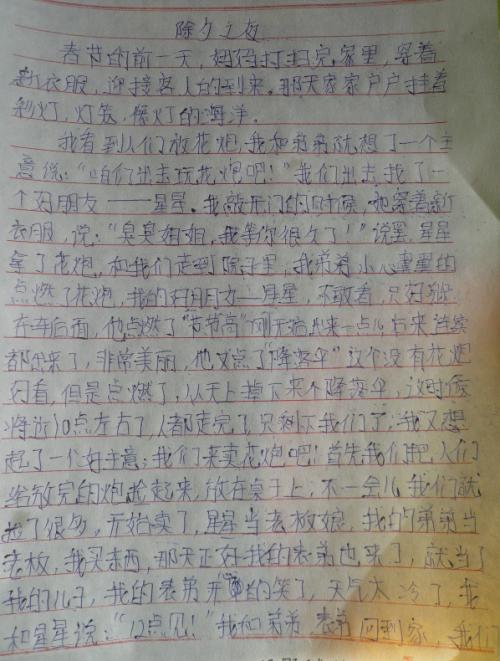 除夕之夜
春节的前一天，妈妈打扫完家里，穿着
新衣服，迎接客人的到来。那天家家户户挂着
彩灯，灯笼，像灯的海洋。
我看到人们放花炮，我和弟弟就想了一个主
意说：“咱们出去玩花炮吧！”我们出去找了一
个好朋友——星星。我敲开门的时候，她穿着新
衣服，说：“臭臭姐姐，我等你很久了！”说罢，星星
拿了花炮，和我们走到院子里，我弟弟小心翼翼的
点燃了花炮，我的好朋友—星星，不敢看，只好躲
在车后面，他点燃了“节节高”刚开始出来一点儿，后来
都出来了，非常美丽，他又点了“降落伞”这个没有花炮
好看，但是点燃了，从天上掉下来个降落伞，这时候
将近10点左右了，人都走完了，只剩下我们了，我又想
起了一个好主意；我们来卖花炮吧！首先我们把人们
给放完的炮捡起来，放在桌子上，不一会儿我们就
捡了很多，开始卖了，星星当老板娘，我的弟弟当
老板，我买东西，那天正好我的表弟也来了，就当了
我的儿子，我的表弟开的笑了，天气太冷了，我
和星星说：“12点见！”我和弟弟 表弟回到家，我们